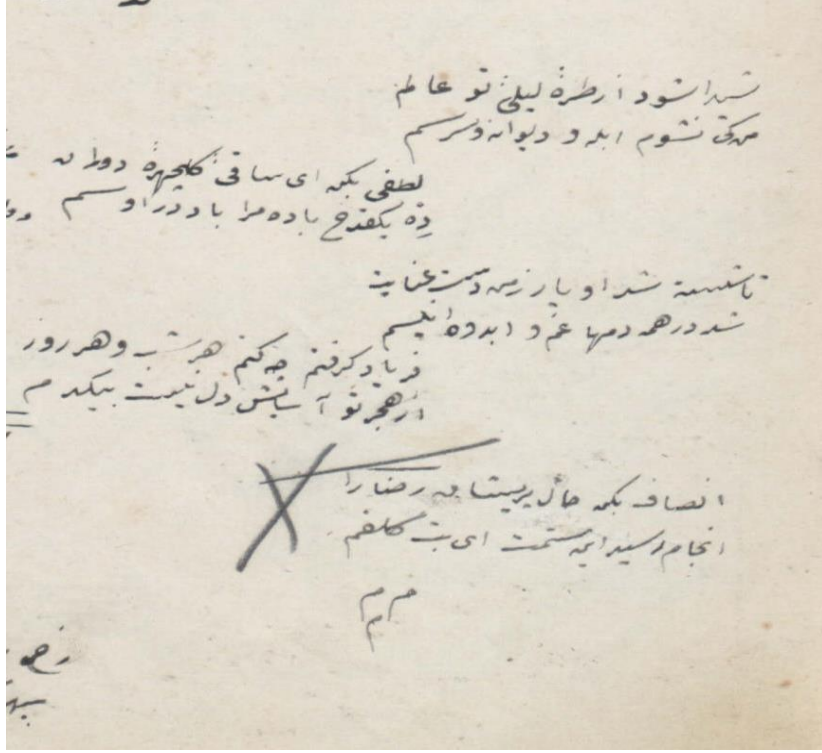 شیدا شود از طرهٔ لیلیٔ تو عالم
من کی نشوم ابله و دیوانه و سرسم
لطفی بکن ای ساقی گلچهرهٔ دوران
دِه یکقدح باده مرا باد در او سم
تا شد او یار ز من دست عنایت
شد در همه دمها غم و اندوه انیسم
فریاد گرفتم چه کنم هر شب و هر روز
از هجر تو آسایش دل نیست بیکدم
انصاف بکن حال پریشان رضا را
انجام رسید این ستمت ای بت گلفم
م م م